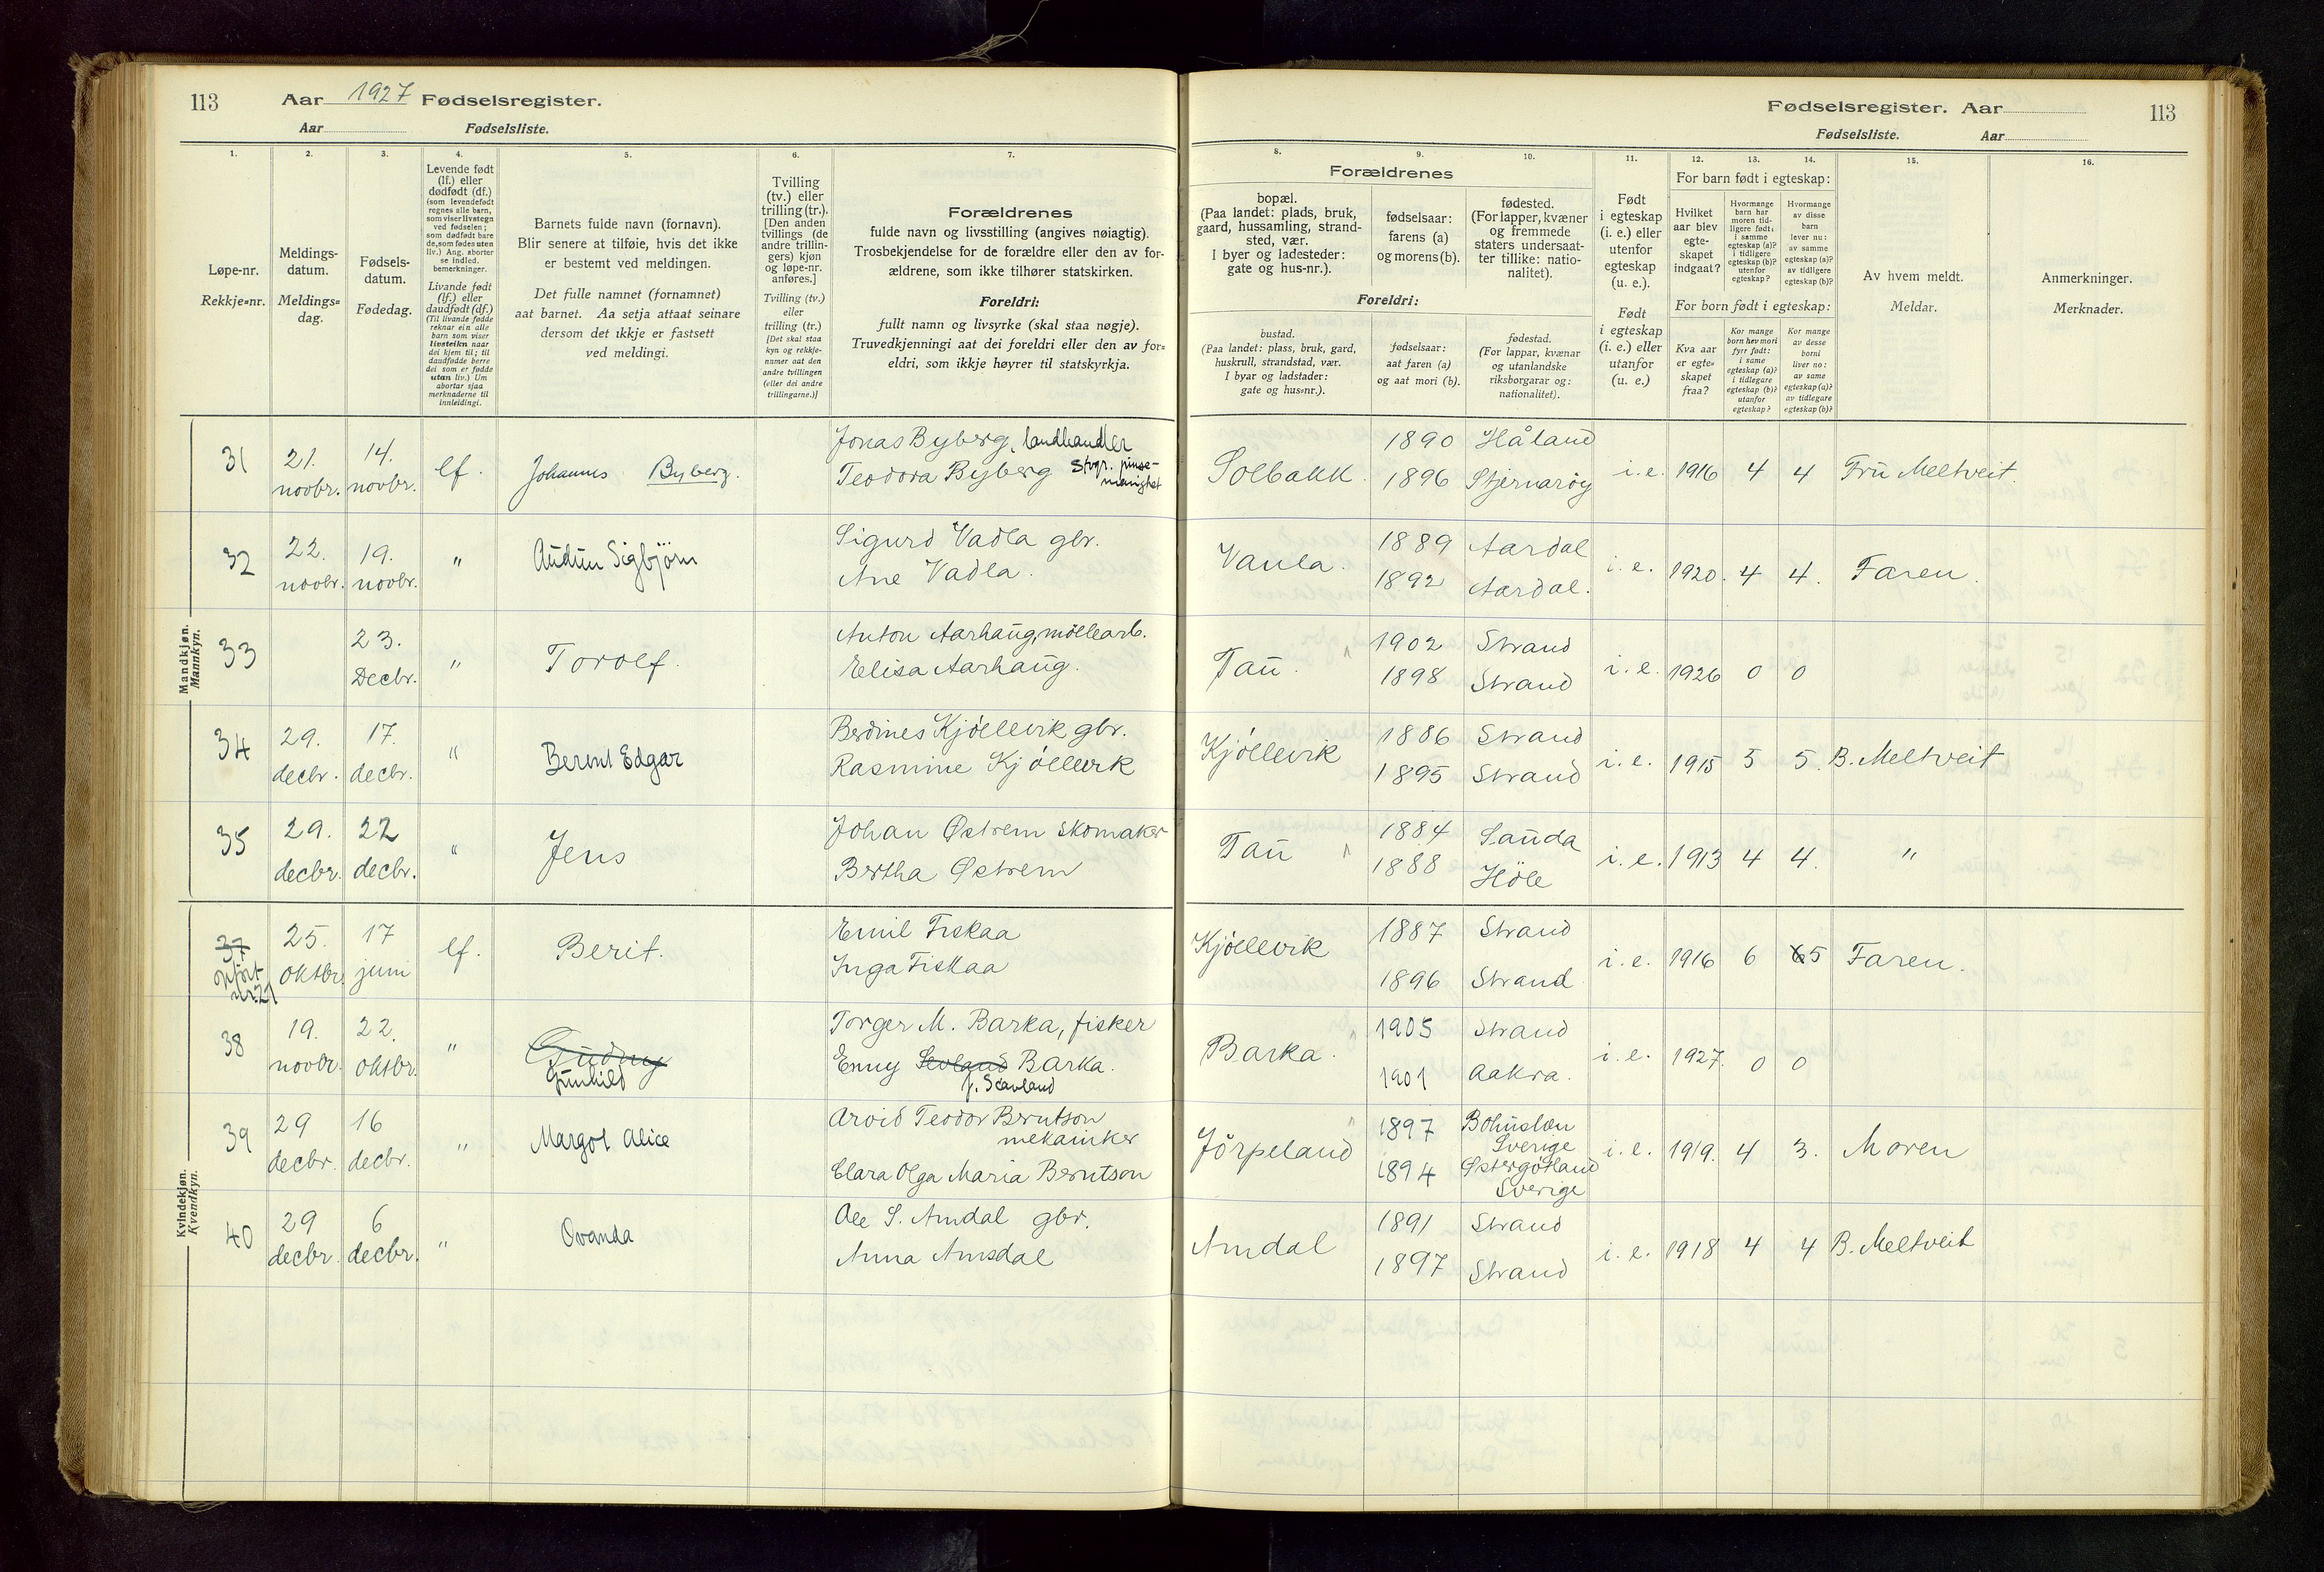 113 Aar 1927 Fødselsregister.
Aar Fødselsliste.
1. 2. 3. 4. 5. 6. 7.
Løpe-nr.
Rekkje=nr.
Meldings-
datum.
Meldings=
dag.
Fødsels-
datum.
Fødedag.
Levende født
(lf.) eller
dødfødt (df.)
(som levendefødt
regnes alle barn,
som viser livstegn
ved fødselen;
som dødfødt bare
de, som fødes uten
liv.) Ang. aborter
se indled.
bemerkninger.
Livande født
(lf.) eller
daudfødt (df.)
(Til livande fødde
reknar ein alle
barn som viser
livsteikn naar
dei kjem til; til
daudfødde berre
dei som er fødde
utan liv.) Um
abortar sjaa
merknaderne til
innleidingi.
Barnets fulde navn (fornavn).
Blir senere at tilføie, hvis det ikke
er bestemt ved meldingen.
Det fulle namnet (fornamnet)
aat barnet. Aa setja attaat seinare
dersom det ikkje er fastsett
ved meldingi.
Tvilling
(tv.) eller
trilling (tr.).
[Den anden
tvillings (de
andre trillin-
gers) kjøn
og løpe-nr.
anføres.]
Tvilling (tv.)
eller
trilling (tr.)
[Det skal staa
kyn og rekkje-
numer aat den
andre tvillingen
(eller dei andre
trillingarne.)]
Forældrenes
fulde navn og livsstilling (angives nøiagtig).
Trosbekjendelse for de forældre eller den av for-
ældrene, som ikke tilhører statskirken.
Foreldri:
fullt namn og livsyrke (skal staa nøgje).
Truvedkjenningi aat dei foreldri eller den av for=
eldri, som ikkje høyrer til statskyrkja.
Mandkjøn.
Mannkyn.
31 21. novbr. 14. novbr. lf. Johannes Byberg.
Jonas Byberg, landhandler
Teodora Byberg Stvgr. pinse-
menighet
32 22. novbr. 19. novbr. " Audun Sigbjörn
Sigurd Vadla gbr.
Ane Vadla.
33 23. Decbr. " Torolf.
Anton Aarhaug, møllearb.
Elisa Aarhaug.
34 29. decbr. 17. decbr. " Bernt Edgar
Berdines Kjøllevik gbr.
Rasmine Kjøllevik
35 29. decbr. 22 decbr. " Jens
Johan Østrem skomaker
Bertha Østrem
Kvindekjøn.
Kvendkyn.
37 opført nr. 27 25. oktbr. 17 juni lf. Berit.
Emil Fiskaa
Inga Fiskaa
38 19. novbr. 22. oktbr. " Gudny
Gunhild
Torger M. Barka, fisker
Enny Sevland Barka.
f. Sævland
39 29 decbr. 16 decbr. " Margot Alice
Arvid Teodor Berntson
mekaniker
Clara Olga Maria Berntson
40 29 decbr. 6 decbr. " Ovanda
Ole S. Amdal gbr.
Anna Amsdal
Fødselsregister. Aar 113
Fødselsliste. Aar
8. 9. 10. 11. 12. 13. 14. 15. 16.
Forældrenes
bopæl.
(Paa landet: plads, bruk,
gaard, hussamling, strand-
sted, vær.
I byer og ladesteder:
gate og hus-nr.).
fødselsaar:
farens (a)
og morens (b).
fødested.
(For lapper, kvæner
og fremmede
staters undersaat-
ter tillike: natio-
nalitet).
Foreldri:
bustad.
(Paa landet: plass, bruk, gard,
huskrull, strandstad, vær.
I byar og ladstader:
gate og hus=nr.).
fødselsaar:
aat faren (a)
og aat mori (b).
fødestad.
(For lappar, kvænar
og utanlandske
riksborgarar og:
nationalitet).
Født
i egteskap
(i. e.) eller
utenfor
egteskap
(u. e.).
Født
i egteskap
(i. e.) eller
utanfor
(u. e.).
For barn født i egteskap:
Hvilket
aar blev
egte-
skapet
indgaat?
Hvormange
barn har
moren tid-
ligere født:
i samme
egteskap (a)?
i tidligere
egteskap (b)?
utenfor
egteskap?
Hvormange
av disse
barn
lever nu:
av samme
egteskap (a)?
av tidligere
egteskap (b)?
For born født i egteskap:
Kva aar
er egte=
skapet
fraa?
Kor mange
born hev mori
fyrr født:
i same
egteskap (a)?
i tidlegare
egteskap (b)?
utanfor
egteskap?
Kor mange
av desse
borni
liver no:
av same
egteskap (a)?
av tidlegare
egteskap (b)?
Av hvem meldt.
Meldar.
Anmerkninger.
Merknader.
Solbakk. 1890 Håland
1896 Stjernarøy i. e. 1916 4 4 Fru Meltveit.
Vaula. 1889 Aardal
1892 Aardal. i. e. 1920. 4 4. Faren.
Tau. 1902 Strand
1898 Strand i. e. 1926 0 0
Kjøllevik 1886 Strand
1895 Strand i. e. 1915 5 5. B. Meltveit
Tau 1884 Sauda
1888 Høle i. e. 1913 4 4. "
Kjøllevik 1887 Strand
1896 Strand i. e. 1916 6 6 5 Faren.
Barka. 1905 Strand
1901 Aakra. i. e. 1927. 0 0
Jørpeland 1897 Bohuslen
Sverige
1894 Østergøtland
Sverige i. e. 1919. 4 3. Moren
Amdal 1891 Strand
1897 Strand i. e. 1918 4 4 B. Meltveit